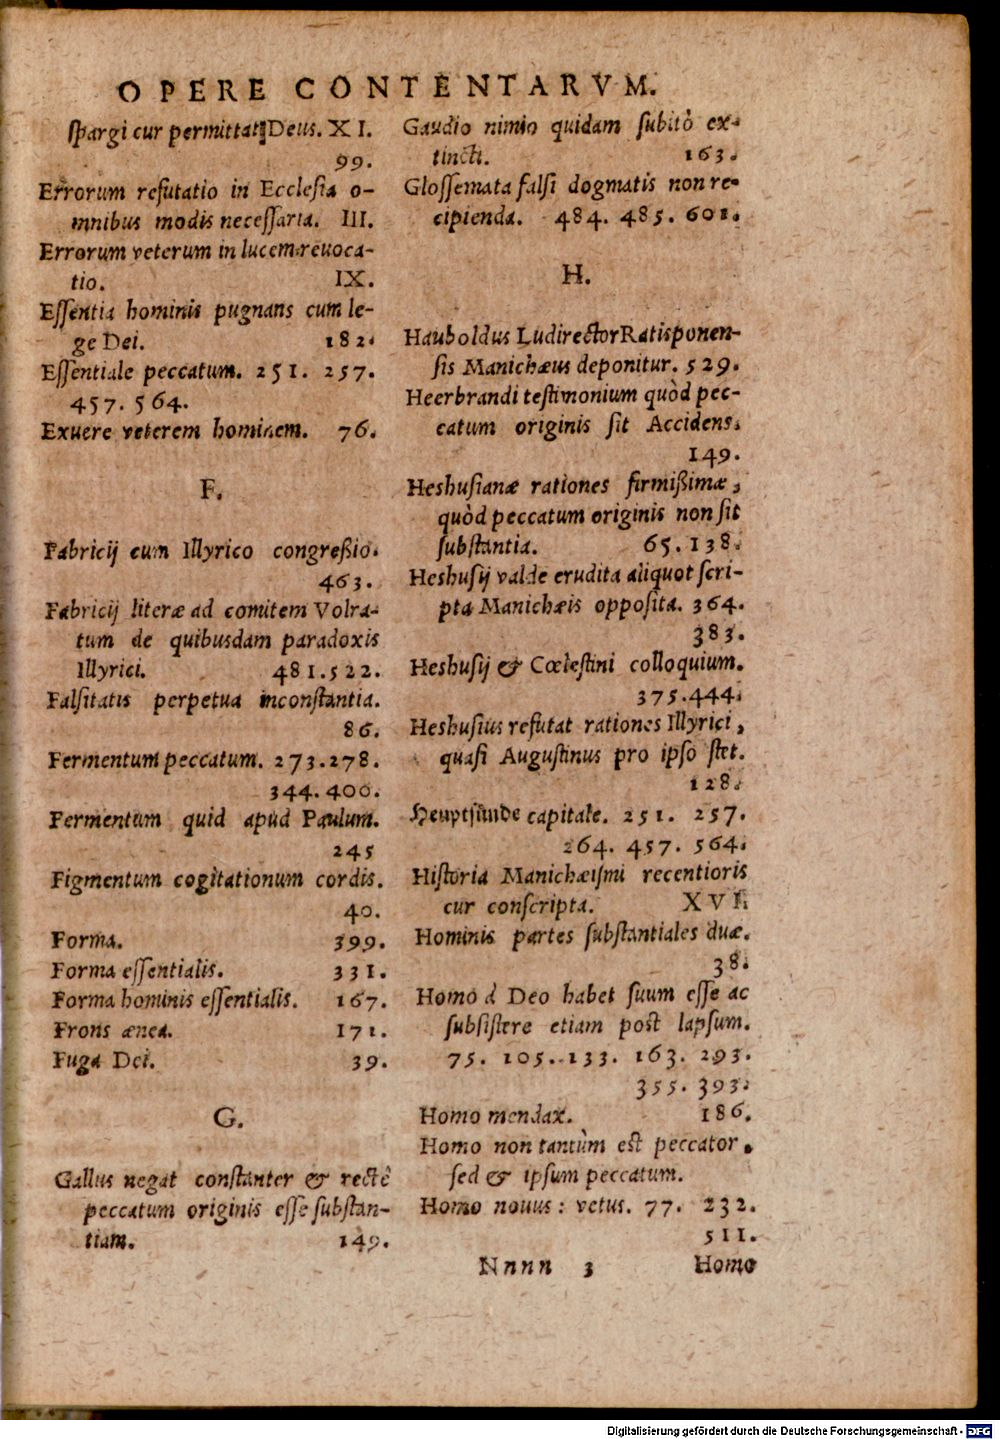 OPERE CONTENTARVM.
ſpargi cur permittat Deus. XI.
99.
Errorum refutatio in Eccleſia o-
mnibus modis neceſſaria. III.
Errorum veterum in lucem reuoca-
tio. IX.
Eſſentia hominis pugnans cum le-
ge Dei. 182.
Eſſentiale peccatum. 251. 257.
457. 564.
Exuere veterem hominem. 76.
F.
Fabricij cum Illyrico congreßio.
463.
Fabricij literæ ad comitem Volra-
tum de quibusdam paradoxis
Illyrici. 481.522.
Falſitatis perpetua inconſtantia.
86.
Fermentum peccatum. 273.278.
344.400.
Fermentum quid apud Paulum.
245
Figmentum cogitationum cordis.
40.
Forma. 399.
Forma eſſentialis. 331.
Forma hominis eſſentialis. 167.
Frons ænea. 171.
Fuga Dei. 39.
G.
Gallus negat conſtanter & rectè
peccatum originis eſſe ſubſtan-
tiam. 149.
Gaudio nimio quidam ſubitò ex-
tincti. 163.
Gloſſemata falſi dogmatis non re-
cipienda. 484. 485. 601.
H.
Hauboldus Ludirector Ratisponen-
ſis Manichæus deponitur. 529.
Heerbrandi teſtimonium quòd pec-
catum originis ſit Accidens.
149.
Heshuſianæ rationes firmißimæ,
quòd peccatum originis non ſit
ſubſtantia. 65.138.
Heshuſij valde erudita aliquot ſcri-
pta Manichæis oppoſita. 364.
383.
Heshuſij & Cœleſtini colloquium.
375.444.
Heshuſius refutat rationes Illyrici,
quaſi Auguſtinus pro ipſo ſtet.
128.
Heuptſünde capitale. 251. 257.
264. 457. 564.
Hiſtoria Manichæiſmi recentioris
cur conſcripta. XVI.
Hominis partes ſubſtantiales duæ.
38.
Homo à Deo habet ſuum eſſe ac
ſubſiſtere etiam poſt lapſum.
75. 105. 133. 163. 293.
355. 393.
Homo mendax. 186.
Homo non tantùm eſt peccator,
ſed & ipſum peccatum.
Homo nouus: vetus. 77. 232.
511.
Nnnn 3 Homo
Digitalisierung gefördert durch die Deutsche Forschungsgemeinschaft - DFG